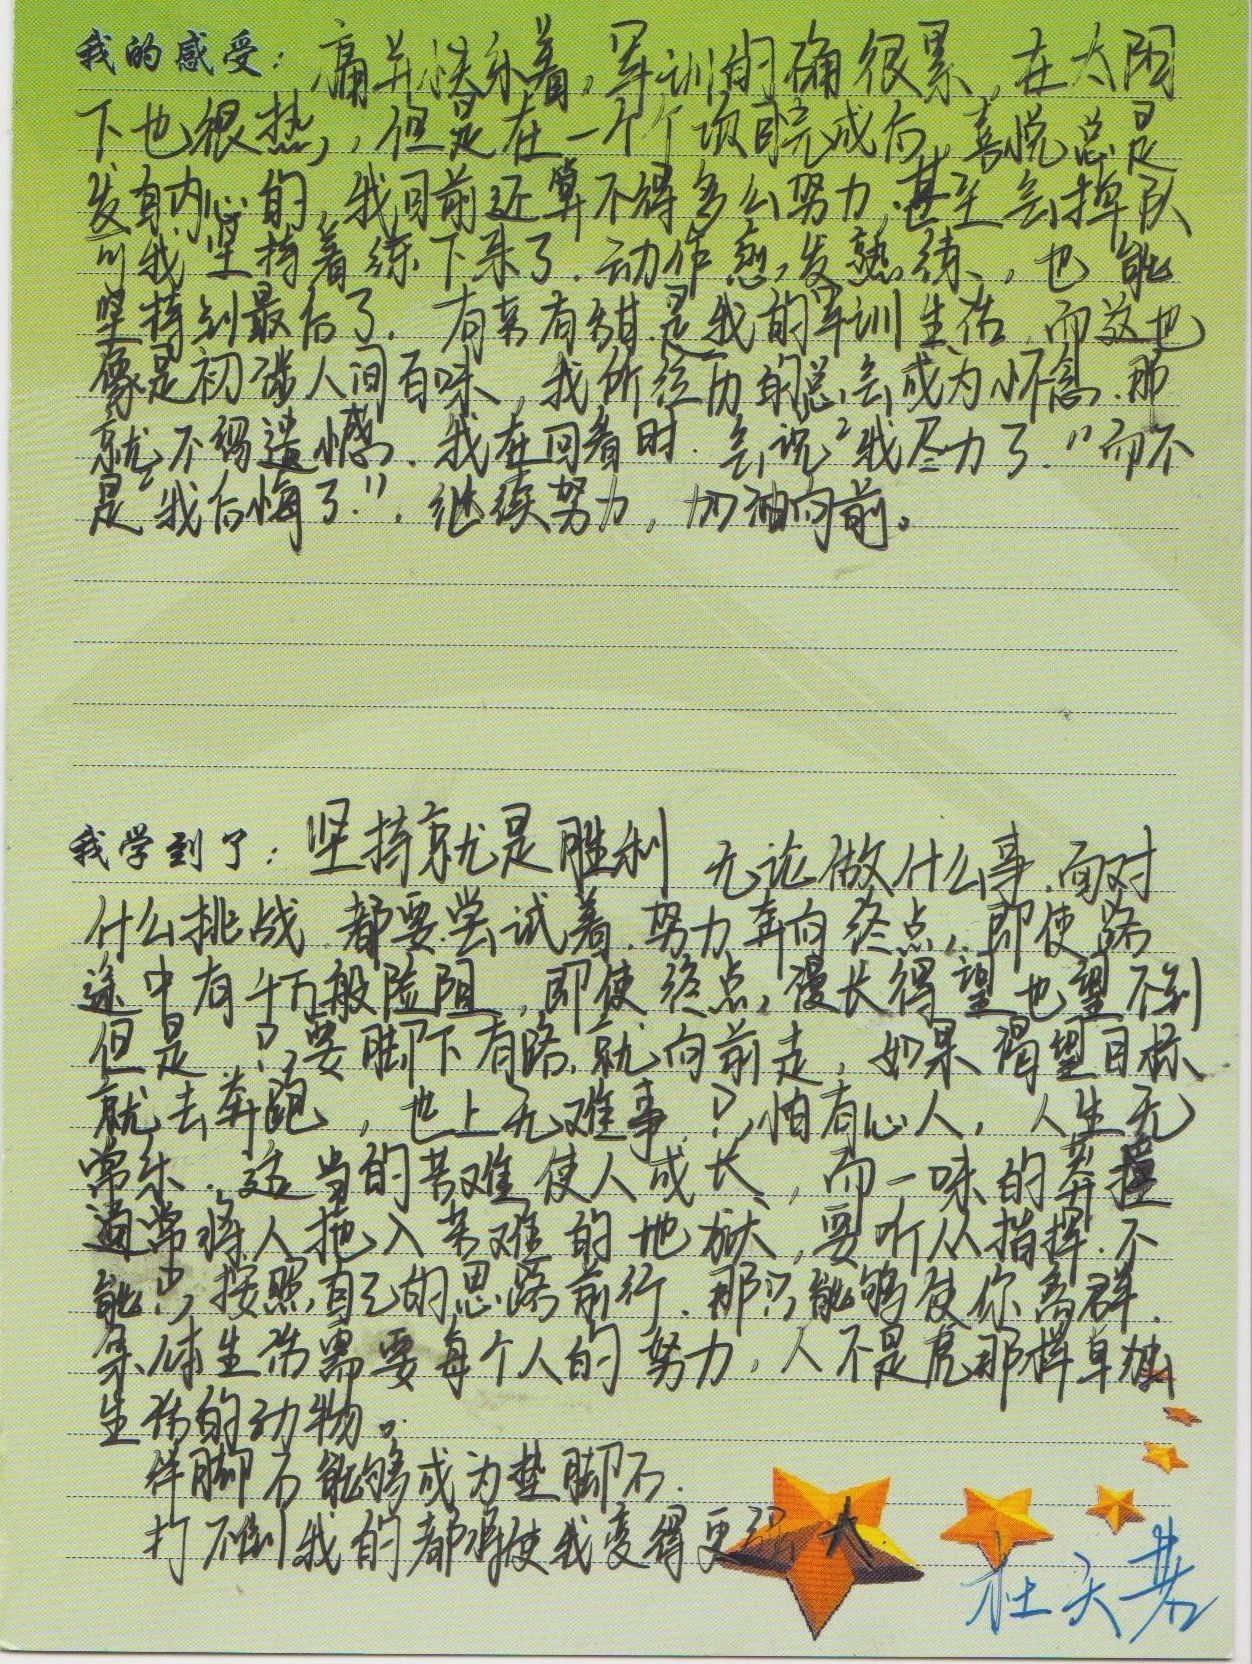 我的感受：痛并快乐着，军训的确很累，在太阳
下也很热，但是在一个个项目完成后，喜悦总是
发自内心的，我目前还算不得多么努力，甚至会掉队
可我坚持着练下来了．动作愈发熟练，也能
坚持到最后了．有苦有甜是我的军训生活，而这也
像是初涉人间百味，我所经历的总会成为怀念．那
就不码遗憾．我在回看时．会说“我尽力了．”而不
是“我后悔了．”．继续努力，加油向前。
我学到了：坚持就是胜利 无论做什么事．面对
什么挑战 都要尝试着．努力奔向终点，即使路
途中有千万般险阻，即使终点，漫长得望也望不到
但是 只要脚下有路．就向前走，如果渴望目标
就去奔跑，世上无难事 只怕有心人，人生无
常乐．适当的苦难使人成长，而一味的莽撞
通常将人拖入苦难的地狱，要听从指挥．不
能只按照自己的思路前行．那只能够使你离群．
集体生活需要每个人的努力，人不是虎那样单独
生活的动物。
绊脚石能够成为垫脚石．
打不倒我的都将使我变得更强大
杜天